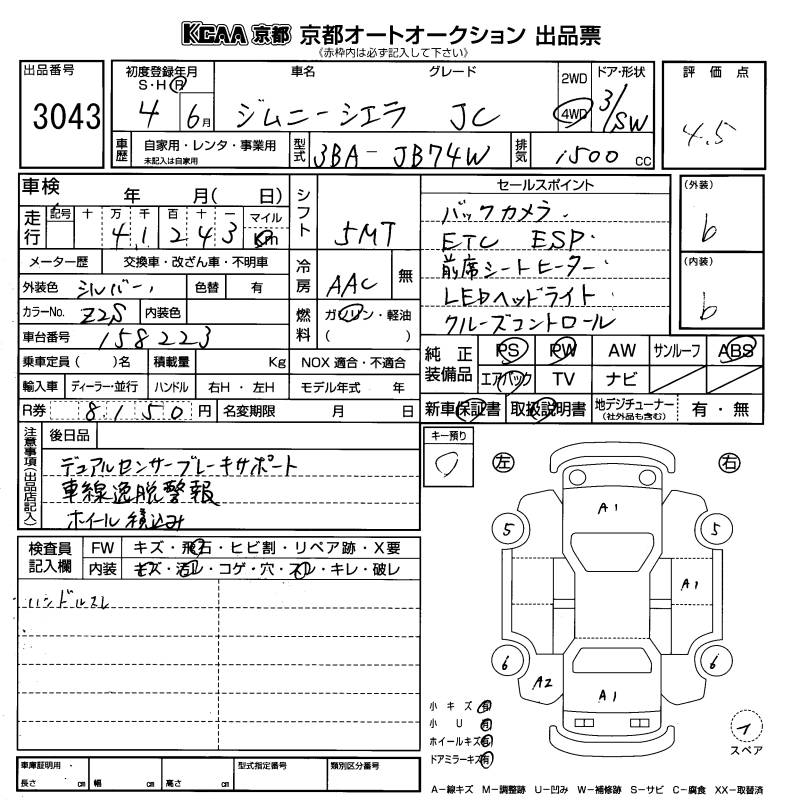 KCAA 京都 京都オートオークション 出品票
《赤枠内は必ず記入して下さい》
出品番号 初度登録年月 車名 グレード 2WD ドア・形状 評価点
S・H・R
3043 4 6月 ジムニーシエラ JC 4WD 3/SW 4.5
車歴 自家用・レンタ・事業用 型式 3BA-JB74W 排気 1500 CC
未記入は自家用
車検 年 月( 日) シフト 5MT セールスポイント (外装)
走行 記号 十 万 千 百 十 一 マイル バックカメラ. b
4 1 2 4 3 Km ETC ESP.
メーター歴 交換車・改ざん車・不明車 冷房 AAC 無 前席シートヒーター. (内装)
外装色 シルバー. 色替 有 LEDヘッドライト b
カラーNo. Z2S 内装色 燃料 ガソリン・軽油 クルーズコントロール
車台番号 158223 ( )
乗車定員( )名 積載量 Kg NOX 適合・不適合 純正装備品 PS PW AW サンルーフ ABS
輸入車 ディーラー・並行 ハンドル 右H・左H モデル年式 年 エアバック TV ナビ
R券 8150円 名変期限 月 日 新車保証書 取扱説明書 地デジチューナー(社外品も含む) 有・無
注意事項(出品店記入) 後日品 キー預り
デュアルセンサーブレーキサポート 0 左 右
車線逸脱警報
ホイール積込み A1
5 5
検査員記入欄 FW キズ・飛石・ヒビ割・リペア跡・X要
内装 キズ・汚レ・コゲ・穴・スレ・キレ・破レ
ハンドルスレ A1
6 6
A2 A1
小キズ 有
小U 有
ホイールキズ 有
ドアミラーキズ 有
イ
スペア
車庫証明用・ 型式指定番号 類別区分番号
長さ cm 幅 cm 高さ cm
A−線キズ M−調整跡 U−凹み W−補修跡 S−サビ C−腐食 XX−取替済